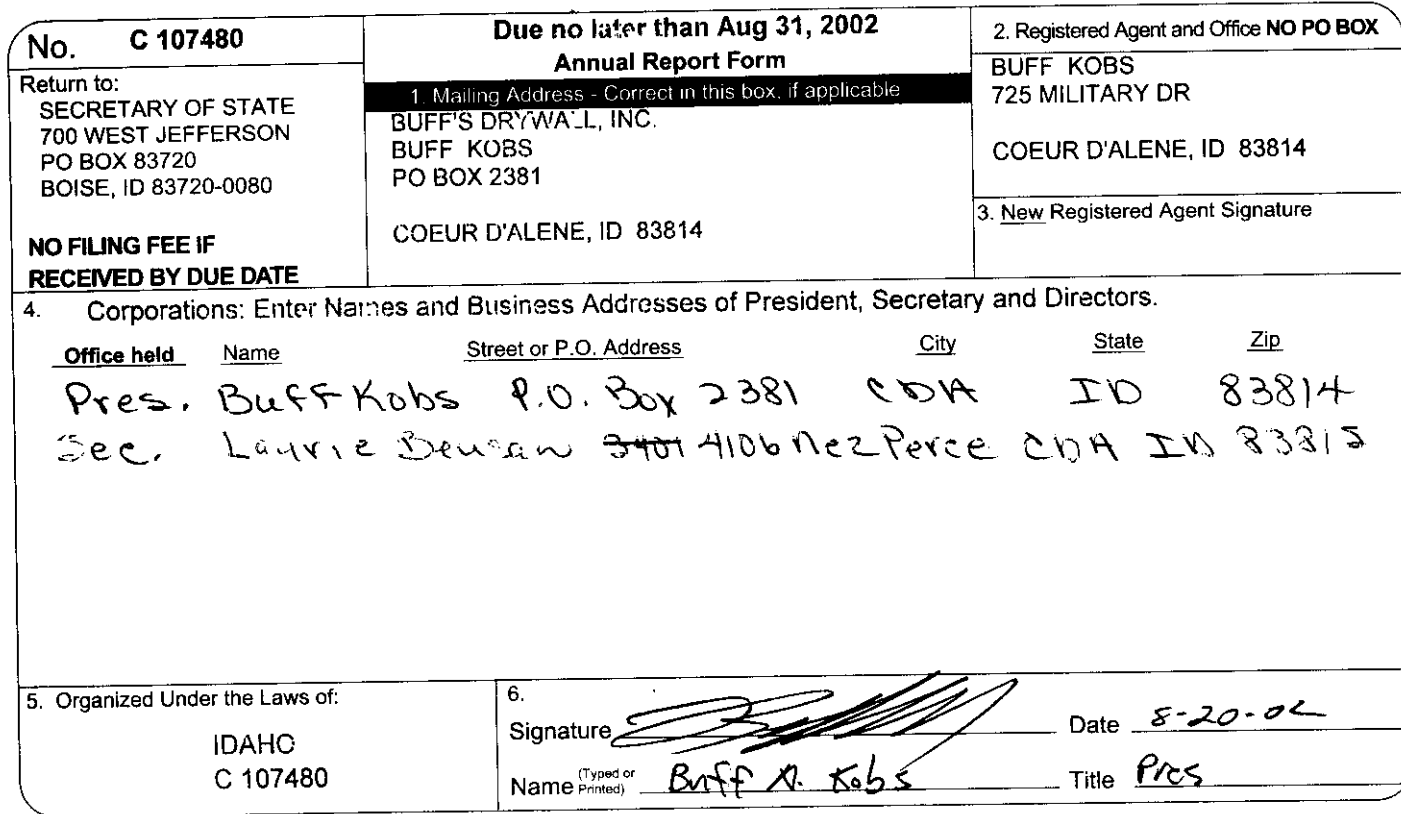 No. C 107480
Return to:
SECRETARY OF STATE
700 WEST JEFFERSON
PO BOX 83720
BOISE, ID 83720-0080
NO FILING FEE IF
RECEIVED BY DUE DATE
Due no later than Aug 31, 2002
Annual Report Form
1. Mailing Address - Correct in this box, if applicable
BUFF'S DRYWALL, INC.
BUFF KOBS
PO BOX 2381
COEUR D'ALENE, ID 83814
2. Registered Agent and Office NO PO BOX
BUFF KOBS
725 MILITARY DR
COEUR D'ALENE, ID 83814
3. New Registered Agent Signature
4. Corporations: Enter Names and Business Addresses of President, Secretary and Directors.
Office held Name Street or P.O. Address City State Zip
Pres. Buff Kobs P.O. Box 2381 CDA ID 83814
Sec. Laurie 4106 Nez Perce CDA ID 83815
5. Organized Under the Laws of:
IDAHO
C 107480
6.
Signature Date 8-20-02
Name (Typed or Printed) Buff A. Kobs Title Pres